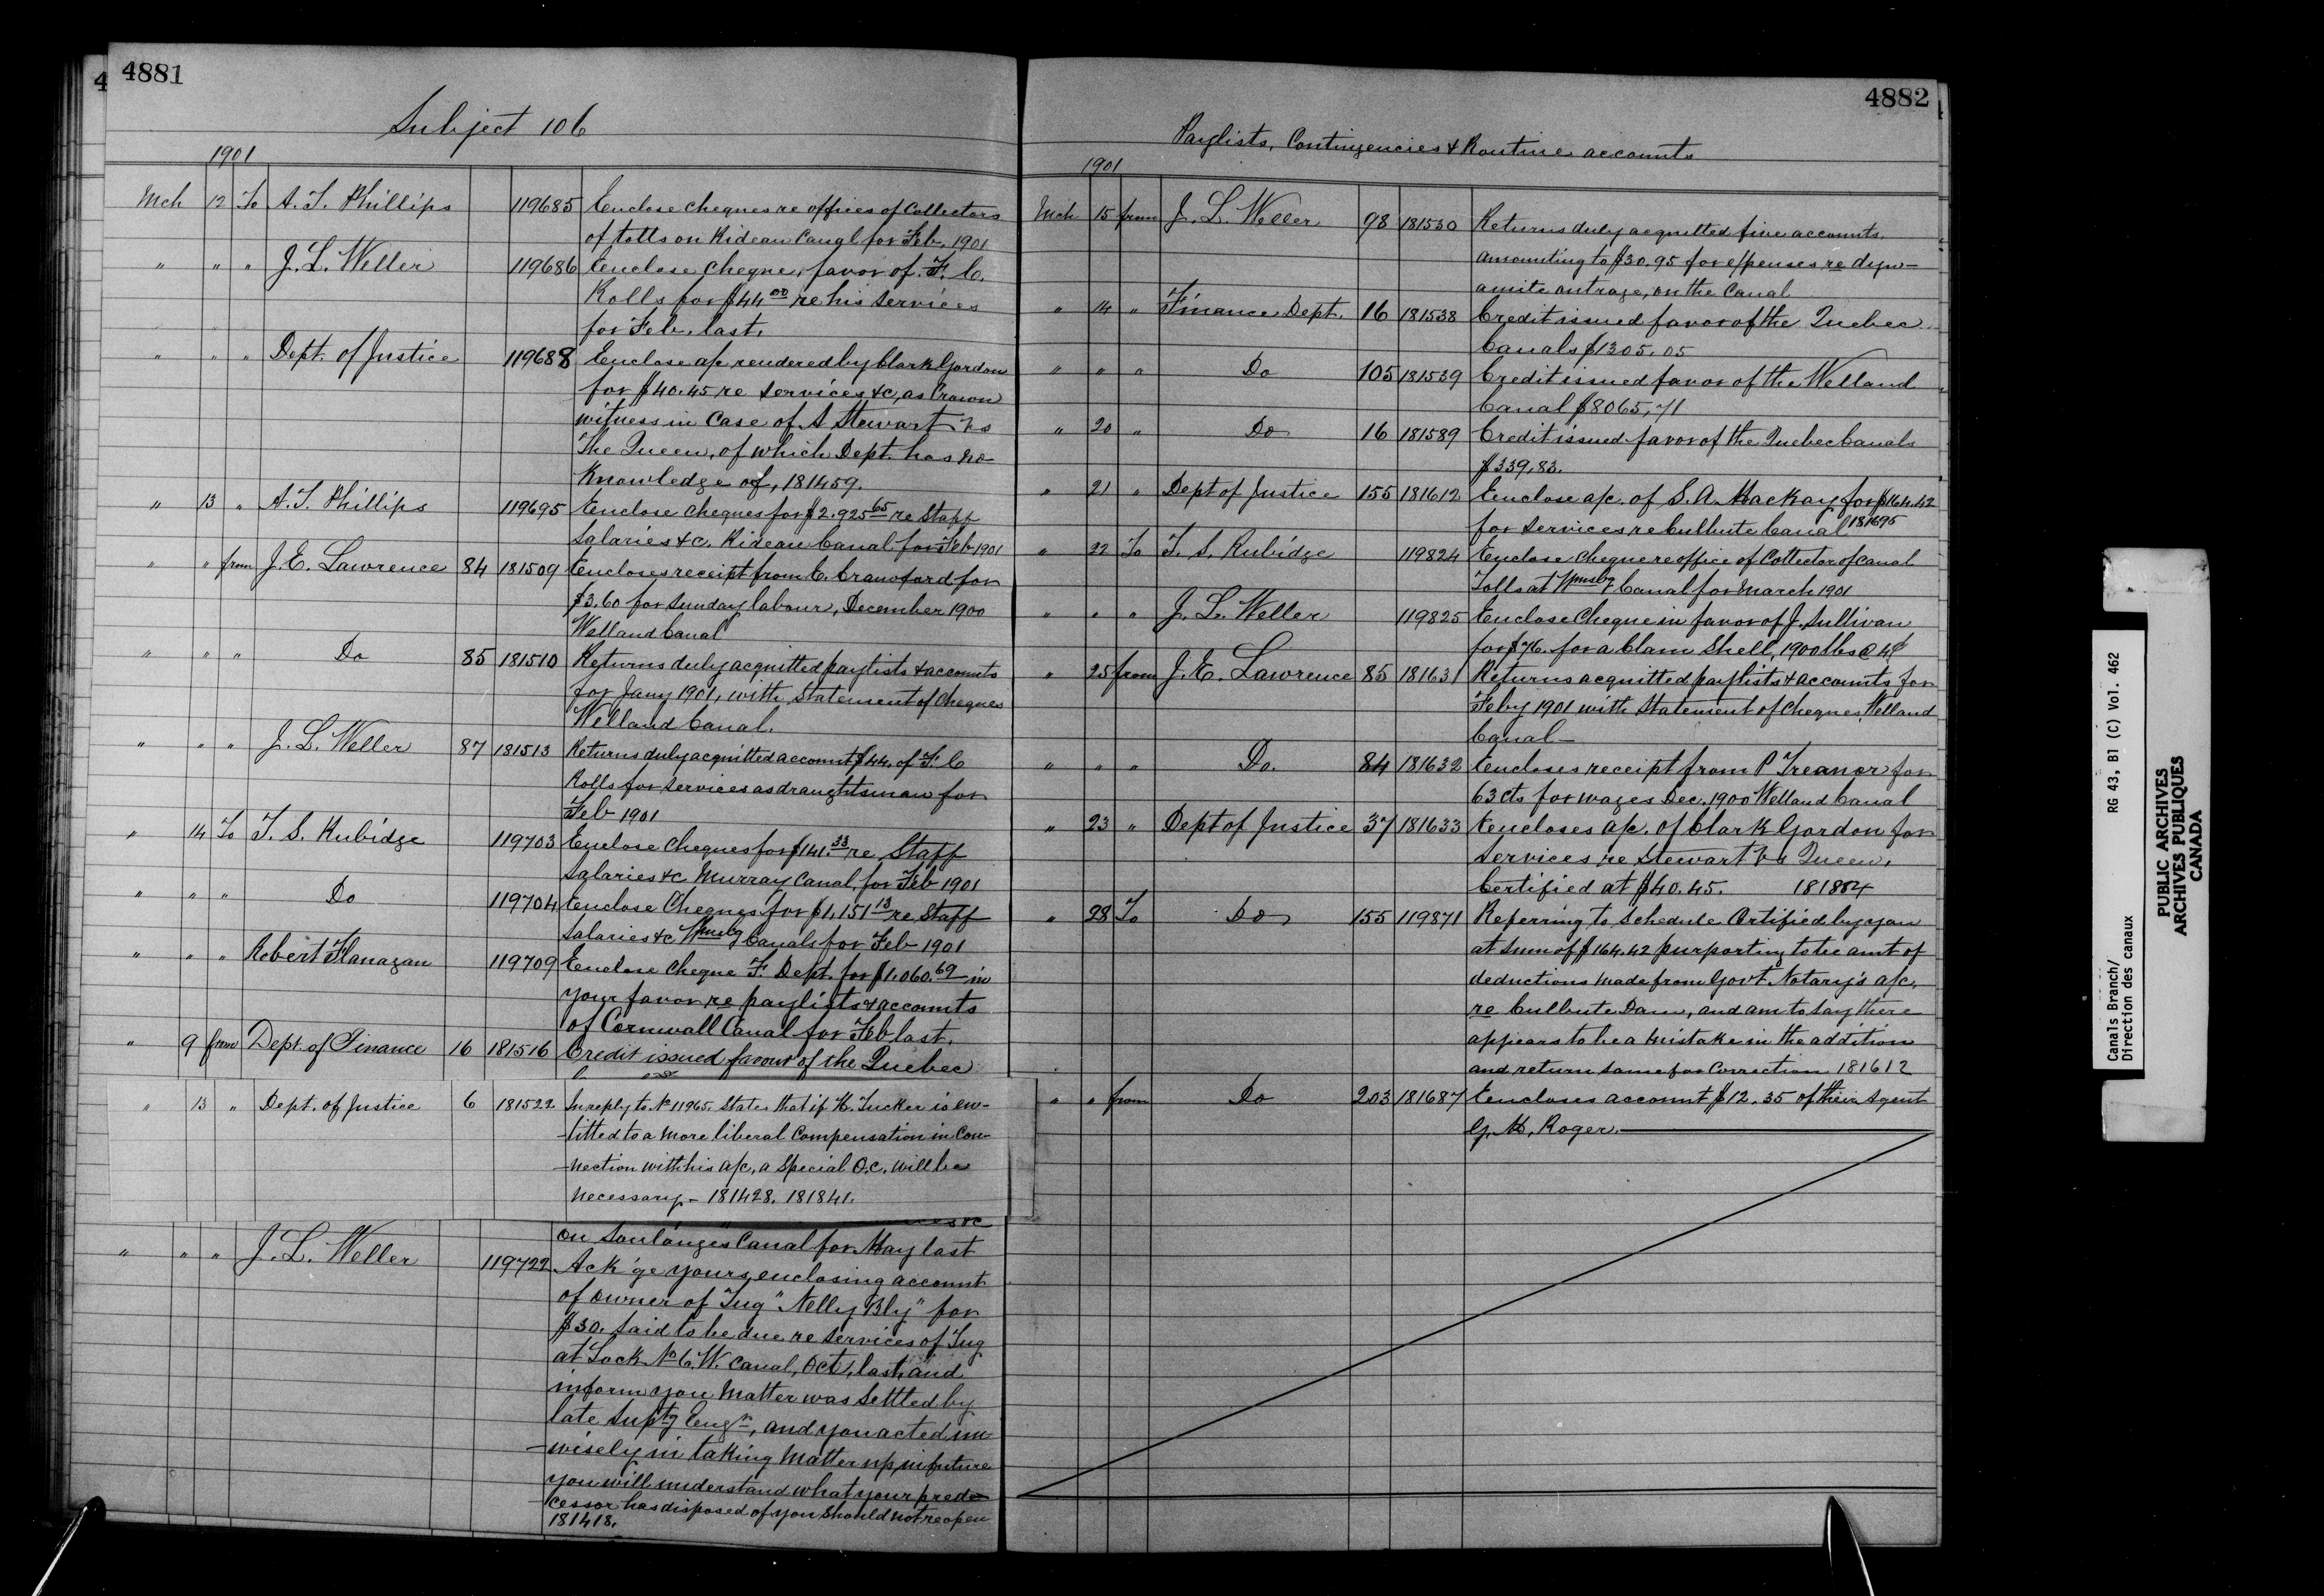 4881
Subject 106
1901
Mch 12 To A. T. Phillips 119685 Enclose cheques re offices of Collectors
of tolls on Rideau Canal for Feb. 1901
" " " J. L. Weller 119686 Enclose cheque, favor of F. C.
Rolls for $44 00 re his services
for Feb. last.
" " " Dept. of Justice 119688 Enclose a/c rendered by Clark Gordon
for $40.45 re services &c, as Crown
witness in Case of A Stewart vs
The Queen, of which Dept. has no
knowledge of, 181459.
" 13 " A. T. Phillips 119695 Enclose cheques for $2.925 65 re Staff
Salaries &c. Rideau Canal for Feb 1901
" " from J. E. Lawrence 84 181509 Encloses receipt from C. Crawford for
$3.60 for Sunday labour, December 1900
Welland Canal
" " " Do 85 181510 Returns duly acquitted paylists & accounts
for Jany 1901, with Statement of Cheques
Welland Canal.
" " " J. L. Weller 87 181513 Returns duly acquitted account $44. of F. C
Rolls for services as draughtsman for
Feb 1901
" 14 To T. S. Rubidge 119703 Enclose Cheques for $141.33 re Staff
Salaries &c Murray Canal, for Feb 1901
" " " Do 119704 Enclose Cheques for $1,151 13 re Staff
Salaries &c Wmsbg Canals for Feb 1901
" " " Robert Flanagan 119709 Enclose Cheque F. Dept. for $1,060.69 in
your favor re paylists & accounts
of Cornwall Canal for Feb last.
" 9 from Dept. of Finance 16 181516 Credit issued favour of the Quebec
" 13 " Dept. of Justice 6 181522 In reply to No 11965. States that if K. Tucker is en-
-titled to a more liberal Compensation in Con-
-nection with his a/c, a Special O.C. will be
necessary - 181428. 181841.
on Soulanges Canal for May last
" " " J. L. Weller 119722 Ack'ge yours, enclosing account
of owner of Tug "Nelly Bly" for
$30. said to be due re services of Tug
at Lock No 6 W. Canal, Oct, last, and
inform you Matter was Settled by
late Suptg Engr, and you acted un
-wisely in taking Matter up, in future
you will understand what your prede-
-cessor has disposed of you should not reopen
181418.
4882
Paylists, Contingencies & Routine accounts
1901
Mch 15 from J. L. Weller 98 181530 Returns duly acquitted five accounts.
amounting to $30.95 for expenses re dyn-
amite outrage, on the Canal
" 14 " Finance Dept. 16 181538 Credit issued favor of the Quebec
Canals $1305.05
" " " Do 105 181539 Credit issued favor of the Welland
Canal $8065,71
" 20 " Do 16 181589 Credit issued favor of the Quebec Canals
$339,83.
" 21 " Dept of Justice 155 181612 Enclose a/c. of S. A. Mackay for $164.42
for services re Culbute Canal 181695
" 22 To T. S. Rubidge 119824 Enclose Cheque re office of Collector of Canal
Tolls at Wmsbg Canal for March 1901
" " " J. L. Weller 119825 Enclose Cheque in favor of J. Sullivan
for $76. for a Clam Shell, 1900 lbs @ 4¢
" 25 from J. E. Lawrence 85 181631 Returns acquitted paylists & accounts for
Feby 1901 with Statement of Cheques, Welland
Canal -
" " " Do. 84 181632 Encloses receipt from P Treanor for
63 cts for wages Dec. 1900 Welland Canal
" 23 " Dept of Justice 37 181633 Encloses a/c. of Clark Gordon for
Services re Stewart vs Queen,
Certified at $40.45.
" 28 To Do 155 119871 Referring to schedule Certified by you
at sum of $164.42 purporting to be amt of
deductions made from Govt Notary's a/c.
re Culbute Dam, and am to say there
appears to be a mistake in the addition
and return same for Correction 181612
" " from Do 203 181687 Encloses account $12.35 of their Agent
G. M. Roger.
Canals Branch/ RG 43, B1 (C) Vol. 462
Direction des canaux
PUBLIC ARCHIVES
ARCHIVES PUBLIQUES
CANADA